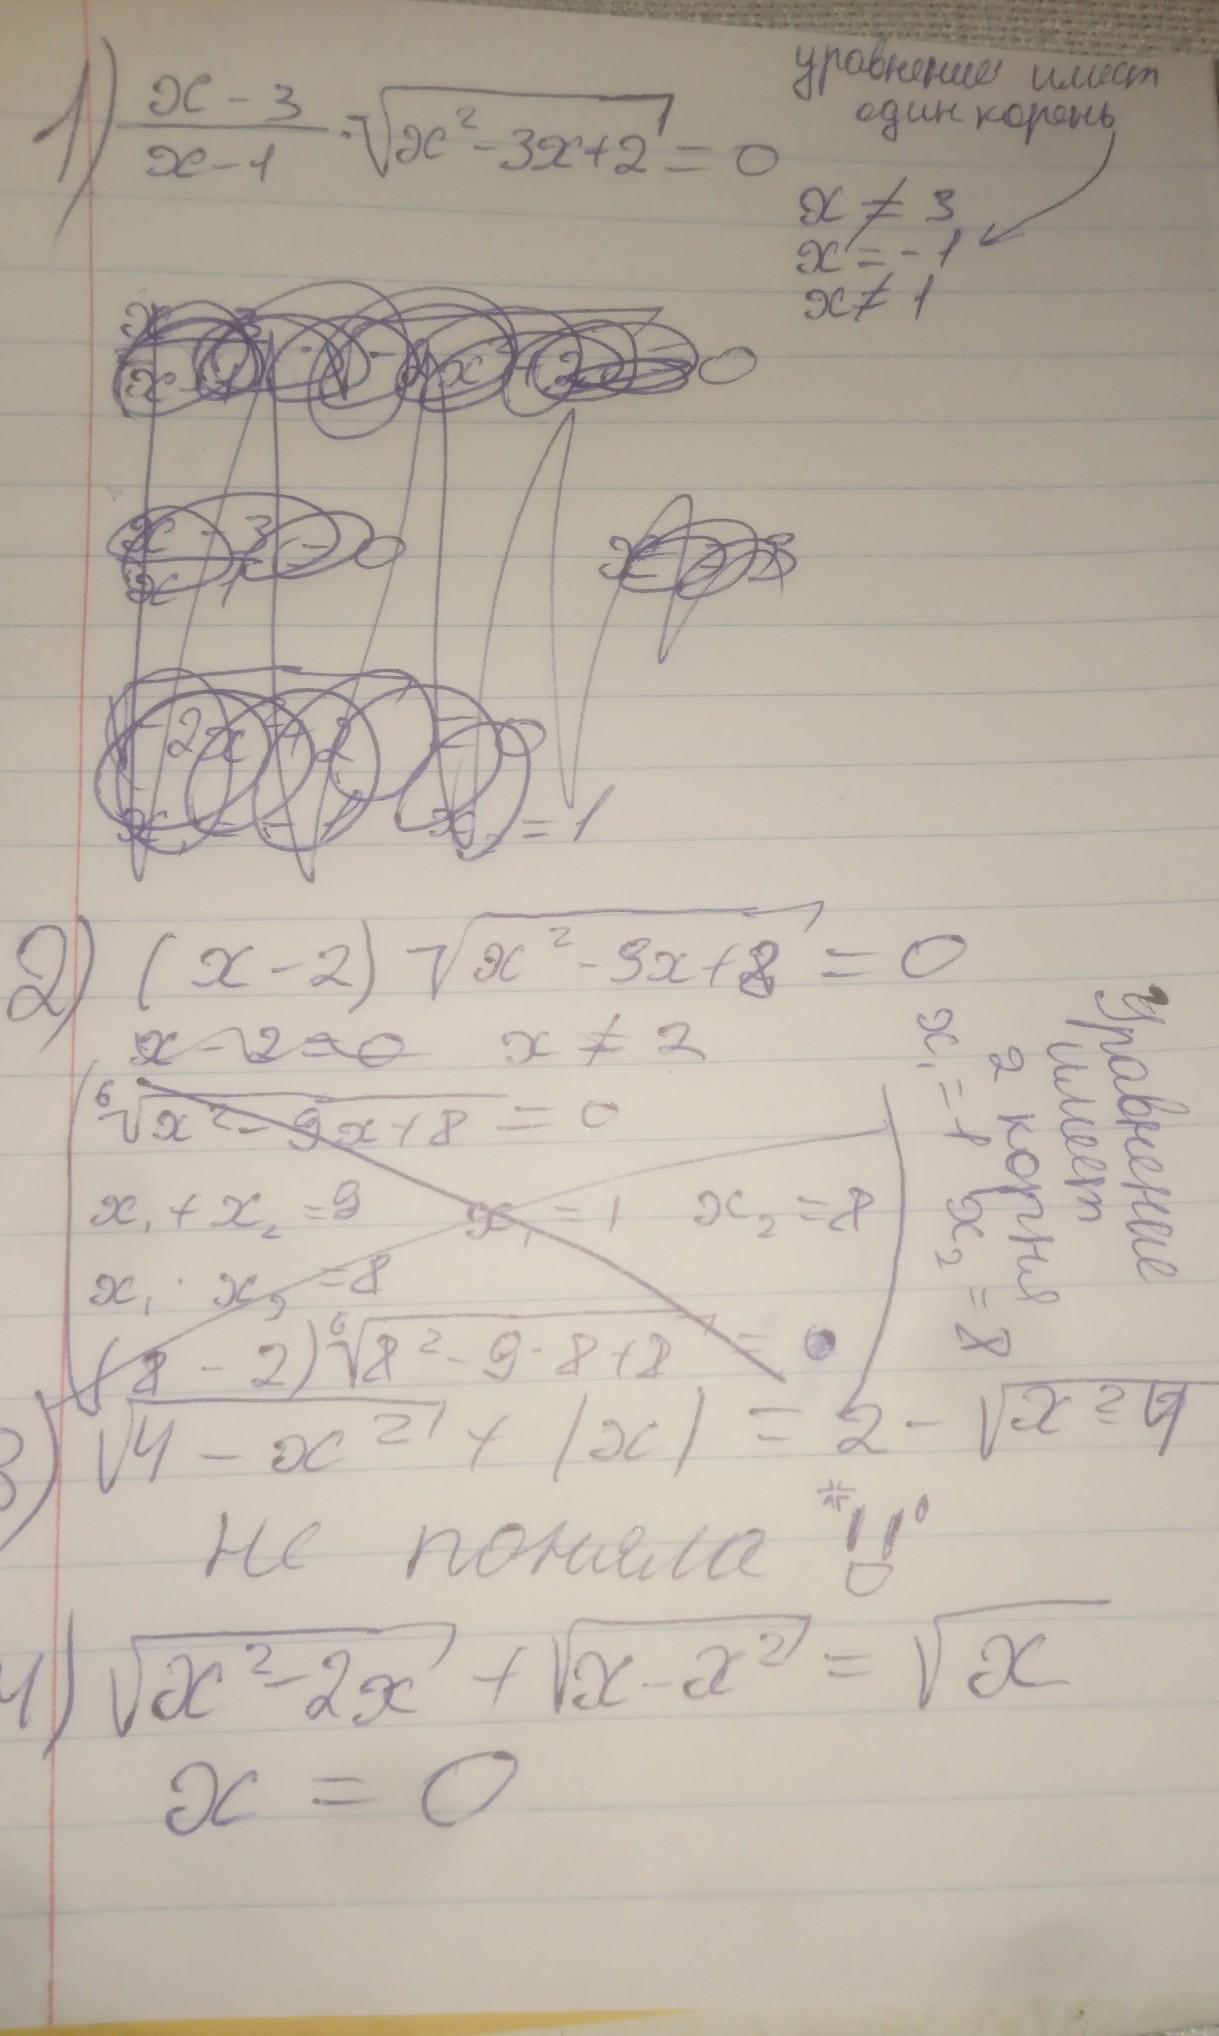 1) (x - 3)/(x - 1) · √(x² - 3x + 2) = 0
уравнение имеет
один корень
x ≠ 3
x = -1
x ≠ 1
= 0
x₂ = 1
2) (x - 2) √(x² - 9x + 8) = 0
x - 2 = 0 x ≠ 2
⁶√(x² - 9x + 8) = 0
x₁ + x₂ = 9 x₁ = 1 x₂ = 8
x₁ · x₂ = 8
(8 - 2) ⁶√(8² - 9 · 8 + 8) = 0
Уравнение
имеет
2 корня
x₁ = 1 x₂ = 8
3) √(4 - x²) + |x| = 2 - √(x² - 4)
не поняла
4) √(x² - 2x) + √(x - x²) = √x
x = 0